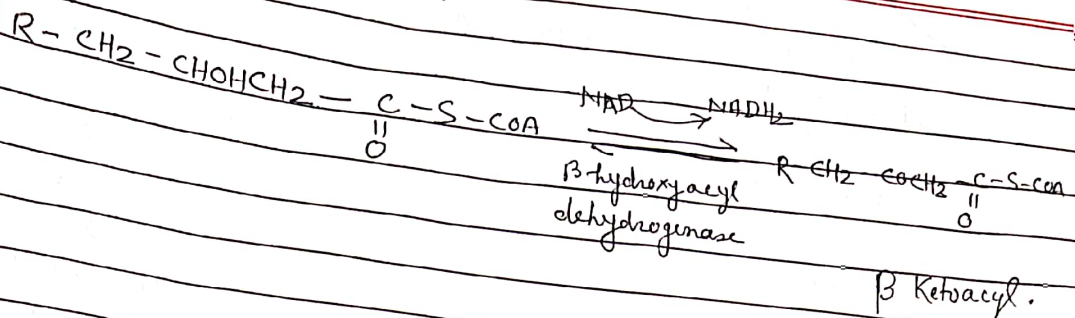 R- CH2 - CHOHCH2 - C - S - COA
||
O
NAD NADH2
β-hydroxyacyl
dehydrogenase
R CH2 COCH2 - C - S - COA
||
O
β Ketoacyl.